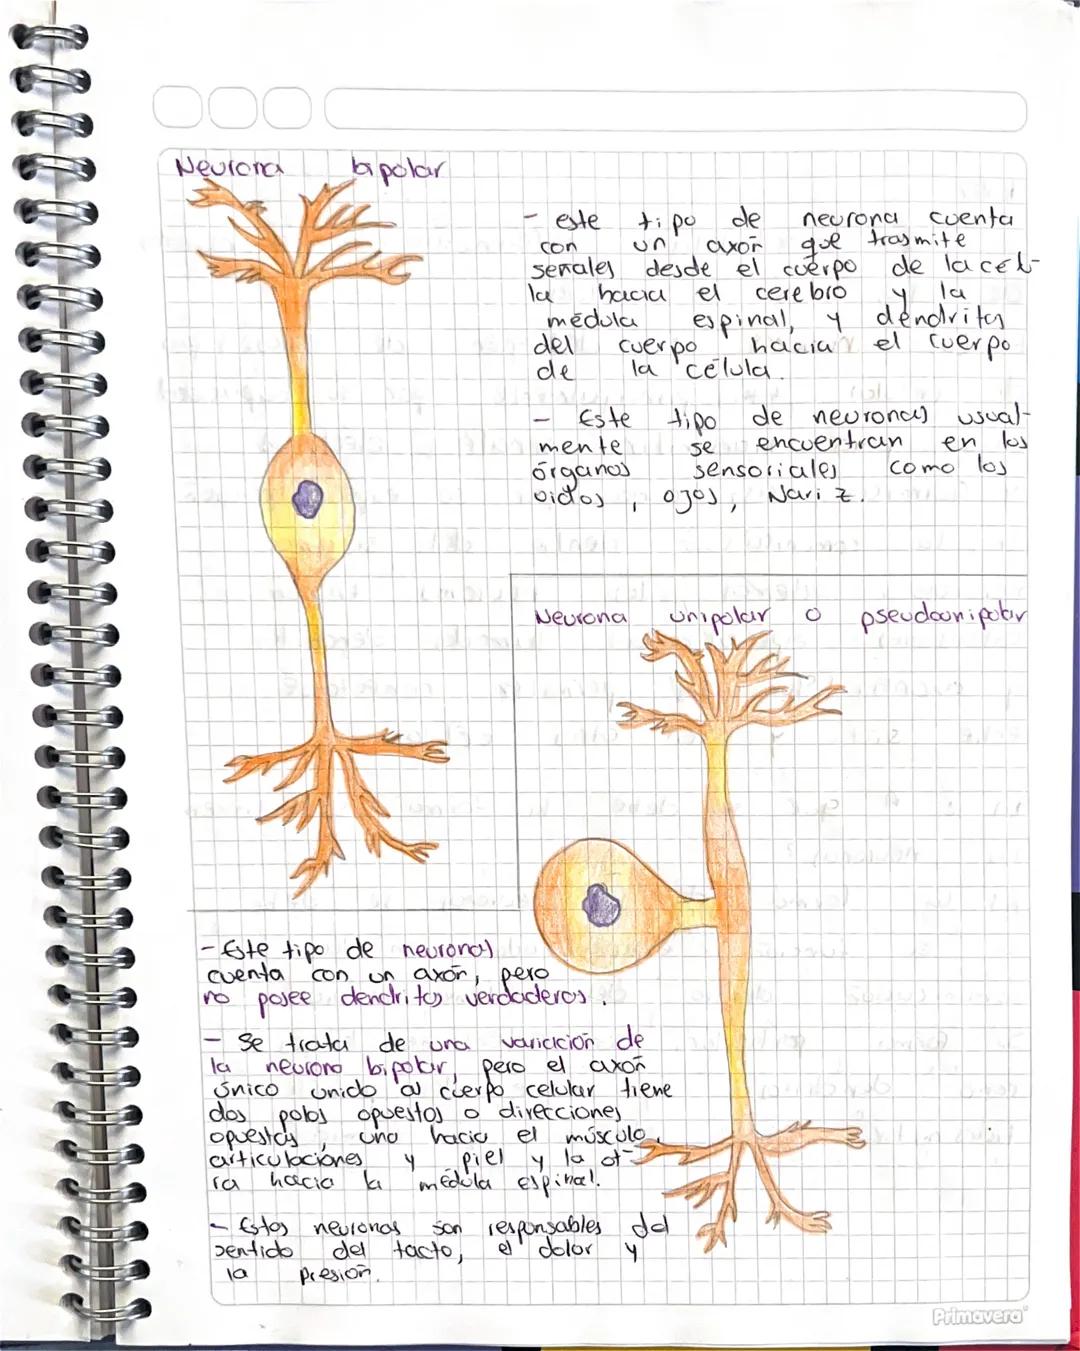 Neurona bipolar
- este tipo de neurona cuenta
con un axón que trasmite
señales desde el cuerpo de la cel-
la hacia el cerebro y la
médula espinal, y dendritas
del cuerpo hacia el cuerpo
de la célula.
- Este tipo de neuronas usual-
mente se encuentran en los
órganos sensoriales como los
oidos, ojos, Nariz.
Neurona unipolar o pseudounipolar
- Este tipo de neuronas
cuenta con un axón, pero
no posee dendritas verdaderos.
- Se trata de una variación de
la neurona bipolar, pero el axón
único unido al cuerpo celular tiene
dos polos opuestos o direcciones
opuestas, uno hacia el músculo,
articulaciones y piel y la ot-
ra hacia la médula espinal.
- Estas neuronas son responsables del
sentido del tacto, el dolor y
la presión.
Primavera